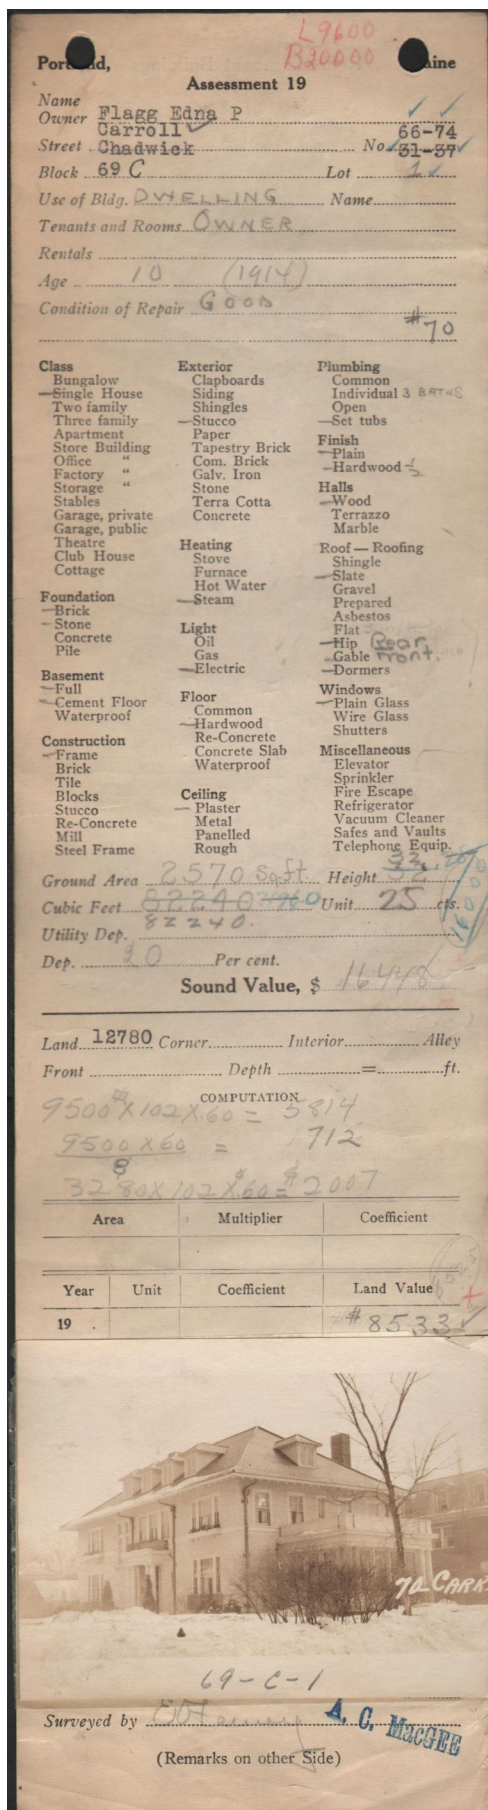 L9600
B20000
Portland, Maine
Assessment 19
Name
Owner Flagg Edna P
Carroll 66-74
Street Chadwick No. 31-37
Block 69 C Lot 1
Use of Bldg. DWELLING Name
Tenants and Rooms OWNER
Rentals
Age 10 (1914)
Condition of Repair GOOD
#70
Class
Bungalow
Single House
Two family
Three family
Apartment
Store Building
Office "
Factory "
Storage "
Stables
Garage, private
Garage, public
Theatre
Club House
Cottage
Foundation
Brick
Stone
Concrete
Pile
Basement
Full
Cement Floor
Waterproof
Construction
Frame
Brick
Tile
Blocks
Stucco
Re-Concrete
Mill
Steel Frame
Exterior
Clapboards
Siding
Shingles
Stucco
Paper
Tapestry Brick
Com. Brick
Galv. Iron
Stone
Terra Cotta
Concrete
Heating
Stove
Furnace
Hot Water
Steam
Light
Oil
Gas
Electric
Floor
Common
Hardwood
Re-Concrete
Concrete Slab
Waterproof
Ceiling
Plaster
Metal
Panelled
Rough
Plumbing
Common
Individual 3 BATHS
Open
Set tubs
Finish
Plain
Hardwood ½
Halls
Wood
Terrazzo
Marble
Roof — Roofing
Shingle
Slate
Gravel
Prepared
Asbestos
Flat
Hip Rear
Gable Front.
Dormers
Windows
Plain Glass
Wire Glass
Shutters
Miscellaneous
Elevator
Sprinkler
Fire Escape
Refrigerator
Vacuum Cleaner
Safes and Vaults
Telephone Equip.
32
Ground Area 2570 Sq.ft. Height 32
Cubic Feet 82240 Unit 25 cts.
82240.
Utility Dep.
Dep. 20 Per cent.
Sound Value, $ 16448
Land 12780 Corner Interior Alley
Front Depth = ft.
COMPUTATION
9500 X 102 X .60 = 5814
9500 X 60 = 712
8
3280 X 102 X .60 = $2007
Area Multiplier Coefficient
Year Unit Coefficient Land Value
19 . #8533
70 CARR
69-C-1
Surveyed by
A. C. MacGEE
(Remarks on other Side)